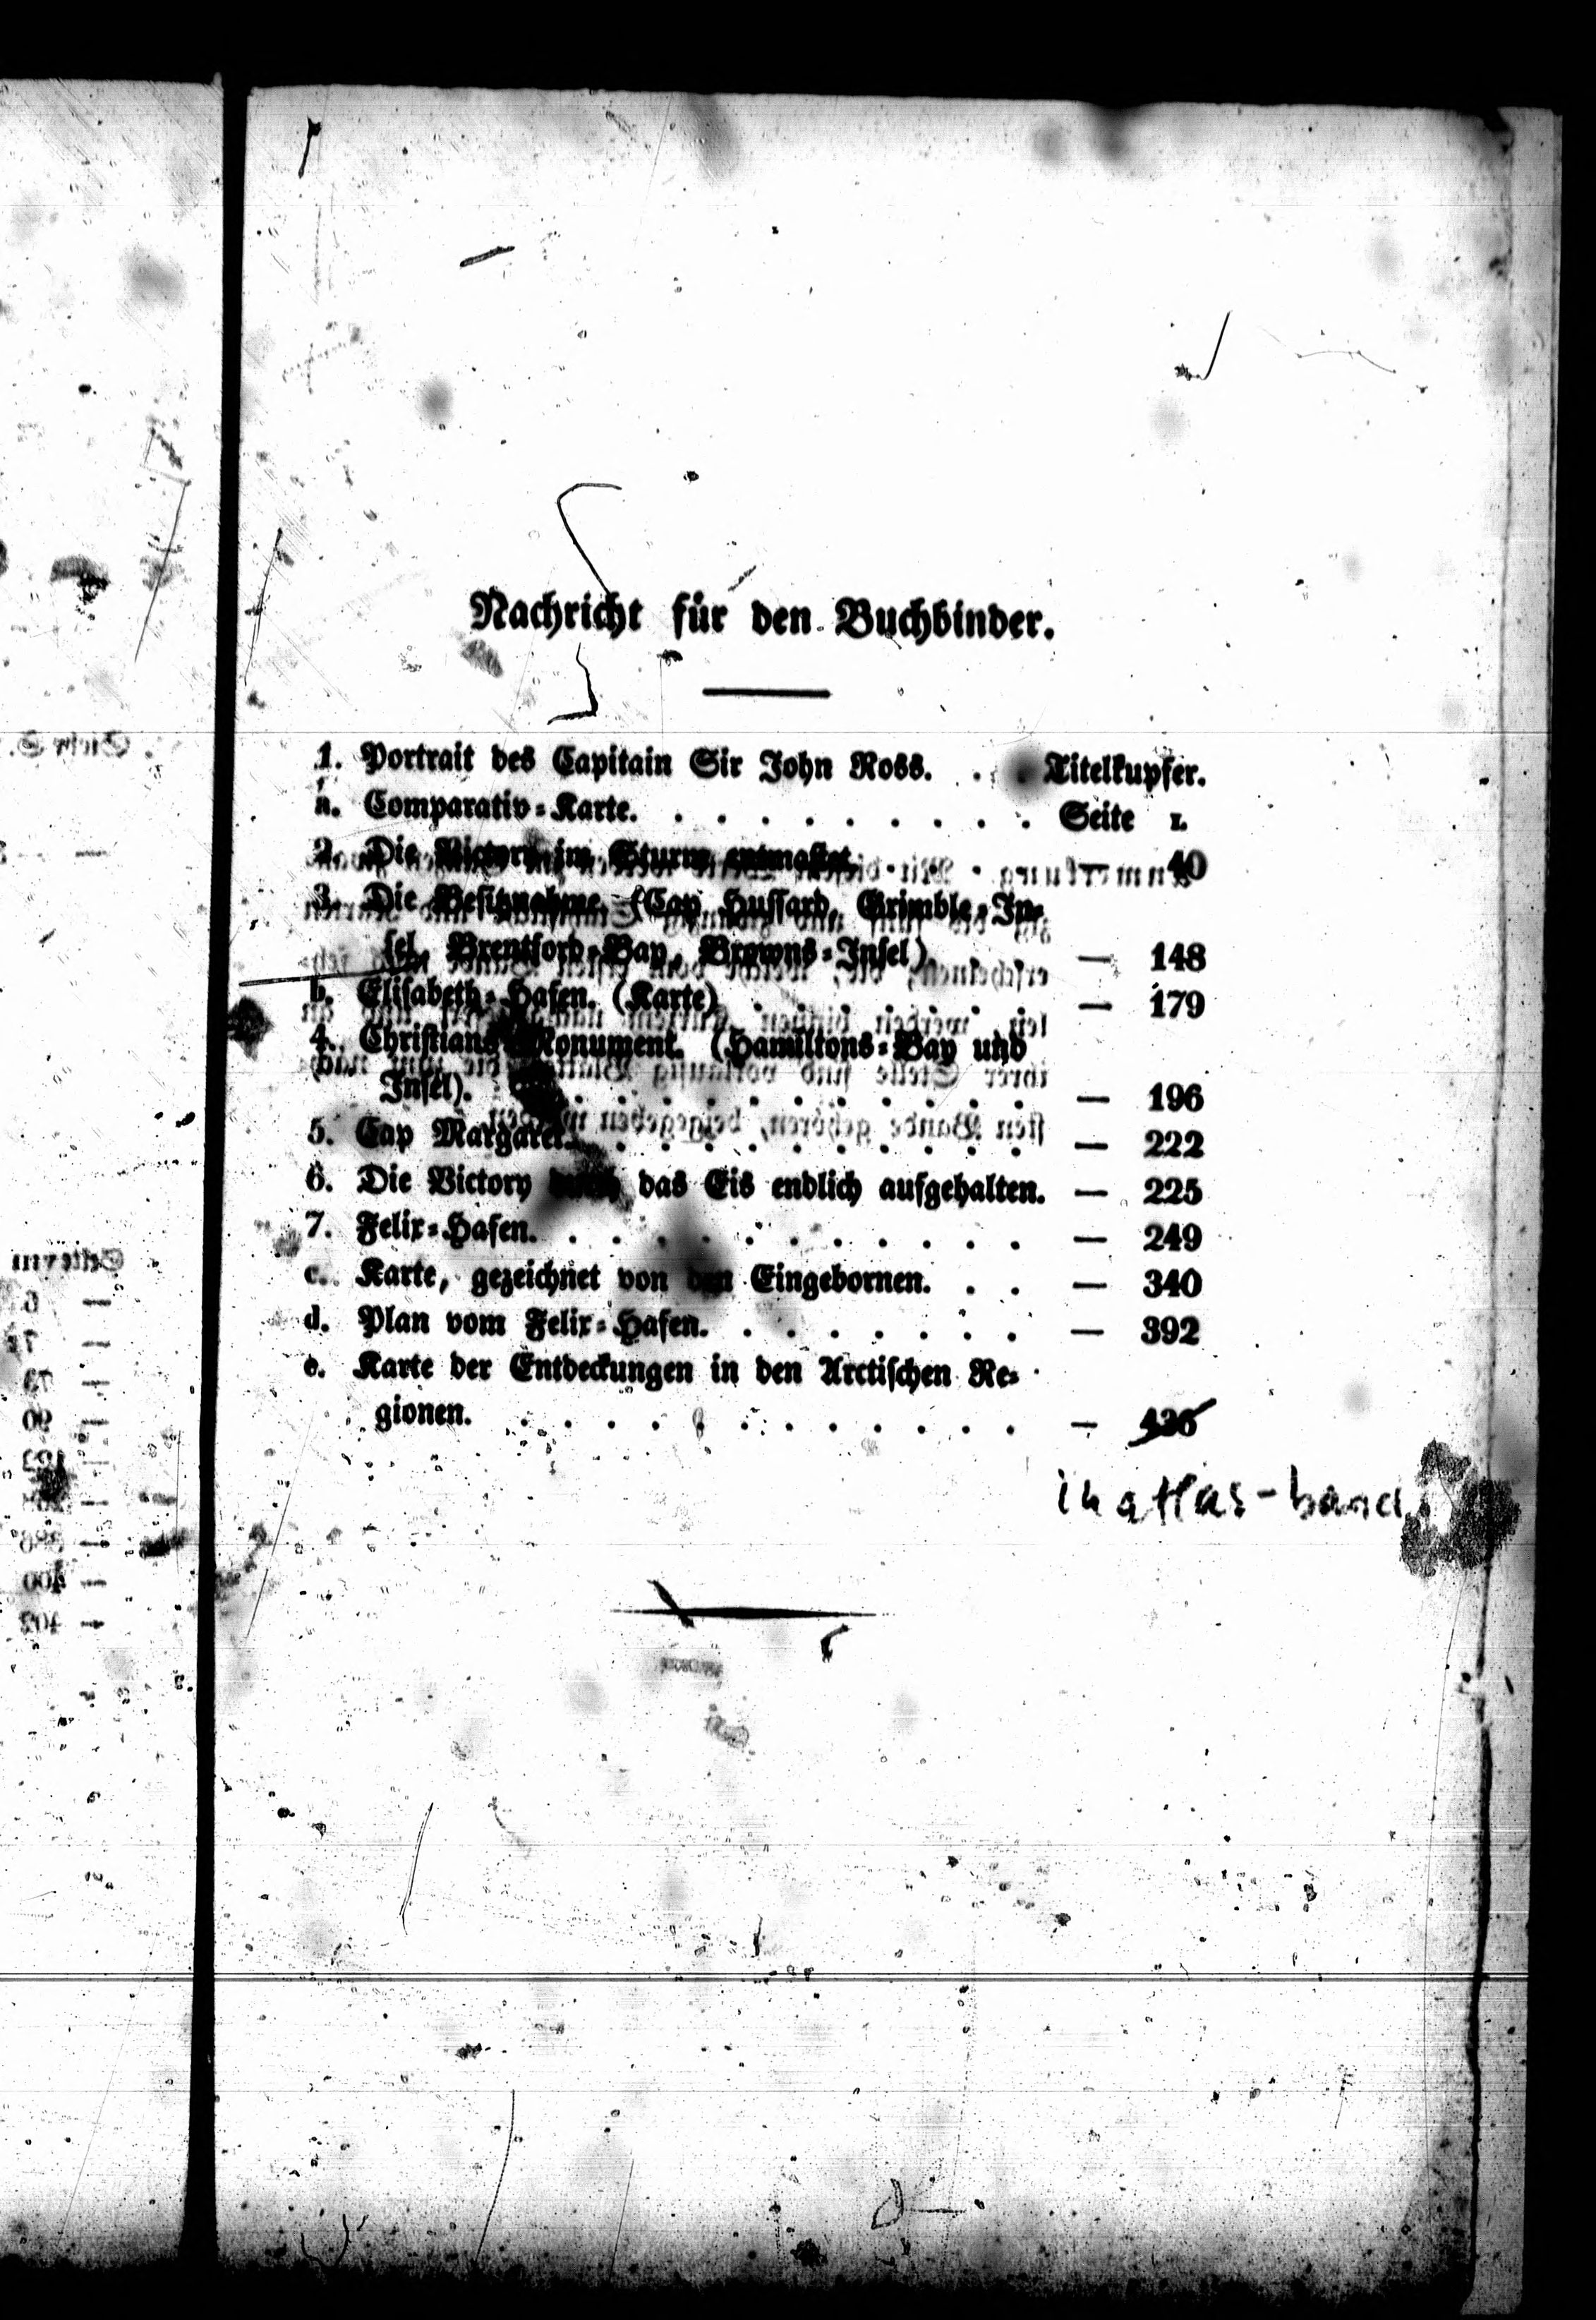 Nachricht für den Buchbinder.
1. Portrait des Capitain Sir John Ross. . . Titelkupfer.
a. Comparativ-Karte. . . . . . . . . . Seite I.
2. Die Victory im Sturm entmastet. — 40
3. Die Besitznahme. (Cap Hussard, Grimble-In-
sel, Brentford-Bay, Browns-Insel). — 148
b. Elisabeth-Hafen. (Karte) . . . . . . . — 179
4. Christians-Monument. (Hamiltons-Bay und
Insel). . . . . . . . . . . . — 196
5. Cap Margaret. . . . . . . . . . . — 222
6. Die Victory durch das Eis endlich aufgehalten. — 225
7. Felix-Hafen. . . . . . . . . . . . — 249
c. Karte, gezeichnet von den Eingebornen. . . — 340
d. Plan vom Felix-Hafen. . . . . . . . — 392
e. Karte der Entdeckungen in den Arctischen Re-
gionen. . . . . . . . . . . . . —
in atlas-band